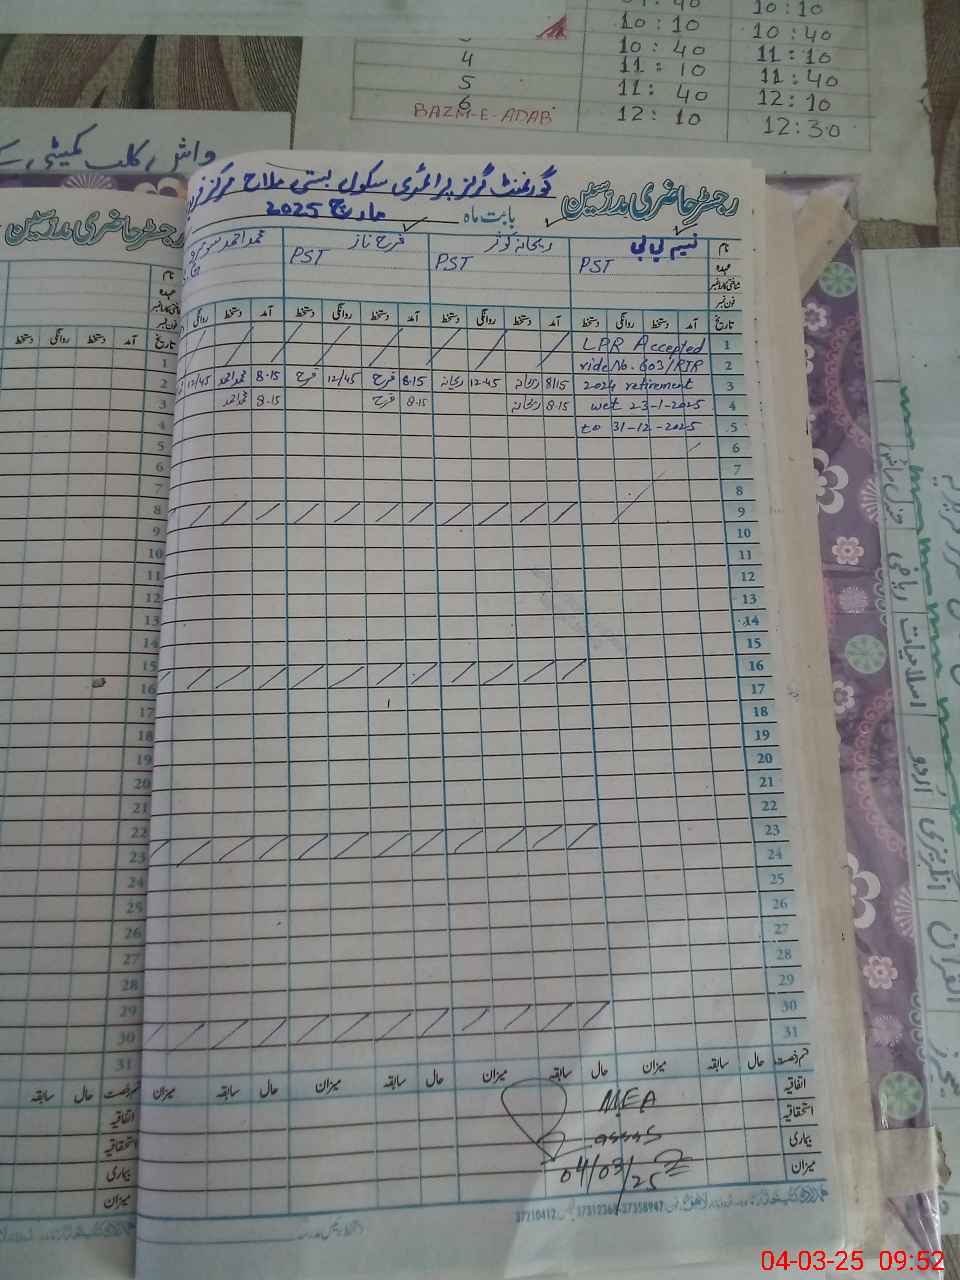 10:10 10:40
4 10:40 11:10
5 11:10 11:40
6 11:40 12:10
BAZM-E-ADAB 12:10 12:30
واش کلب کمیٹی
رجسٹر حاضری مدرسین
گورنمنٹ گرلز پرائمری سکول بستی ملاح مرکز
بابت ماہ مارچ 2025
رجسٹر حاضری مدرسین
نام نسیم بی بی ریحانہ کوثر فرح ناز محمد احمد
عہدہ PST PST PST
شناختی کارڈ نمبر
فون نمبر
تاریخ آمد دستخط روانگی دستخط آمد دستخط روانگی دستخط آمد دستخط روانگی دستخط آمد دستخط روانگی
1 LPR Accepted
2 vide No. 603/RTR
3 2024 retirement 8:15 ریحانہ 12:45 ریحانہ 8-15 فرح 12/45 فرح 8-15 محمد احمد 12/45
4 wef 23-1-2025 8-15 ریحانہ 8-15 فرح 8-15 محمد احمد
5 to 31-12-2025
6
7
8
9
10
11
12
13
14
15
16
17
18
19
20
21
22
23
24
25
26
27
28
29
30
31
قسم رخصت حال سابقہ میزان حال سابقہ میزان حال سابقہ میزان حال سابقہ میزان
اتفاقیہ
استحقاقیہ
بیماری
میزان
MEA
04/03/25
نام
عہدہ
شناختی کارڈ نمبر
فون نمبر
تاریخ آمد دستخط روانگی دستخط
1
2
3
4
5
6
7
8
9
10
11
12
13
14
15
16
17
18
19
20
21
22
23
24
25
26
27
28
29
30
31
قسم رخصت حال سابقہ
اتفاقیہ
استحقاقیہ
بیماری
میزان
ریاضی
اسلامیات
اردو
انگریزی
القرآن
04-03-25 09:52